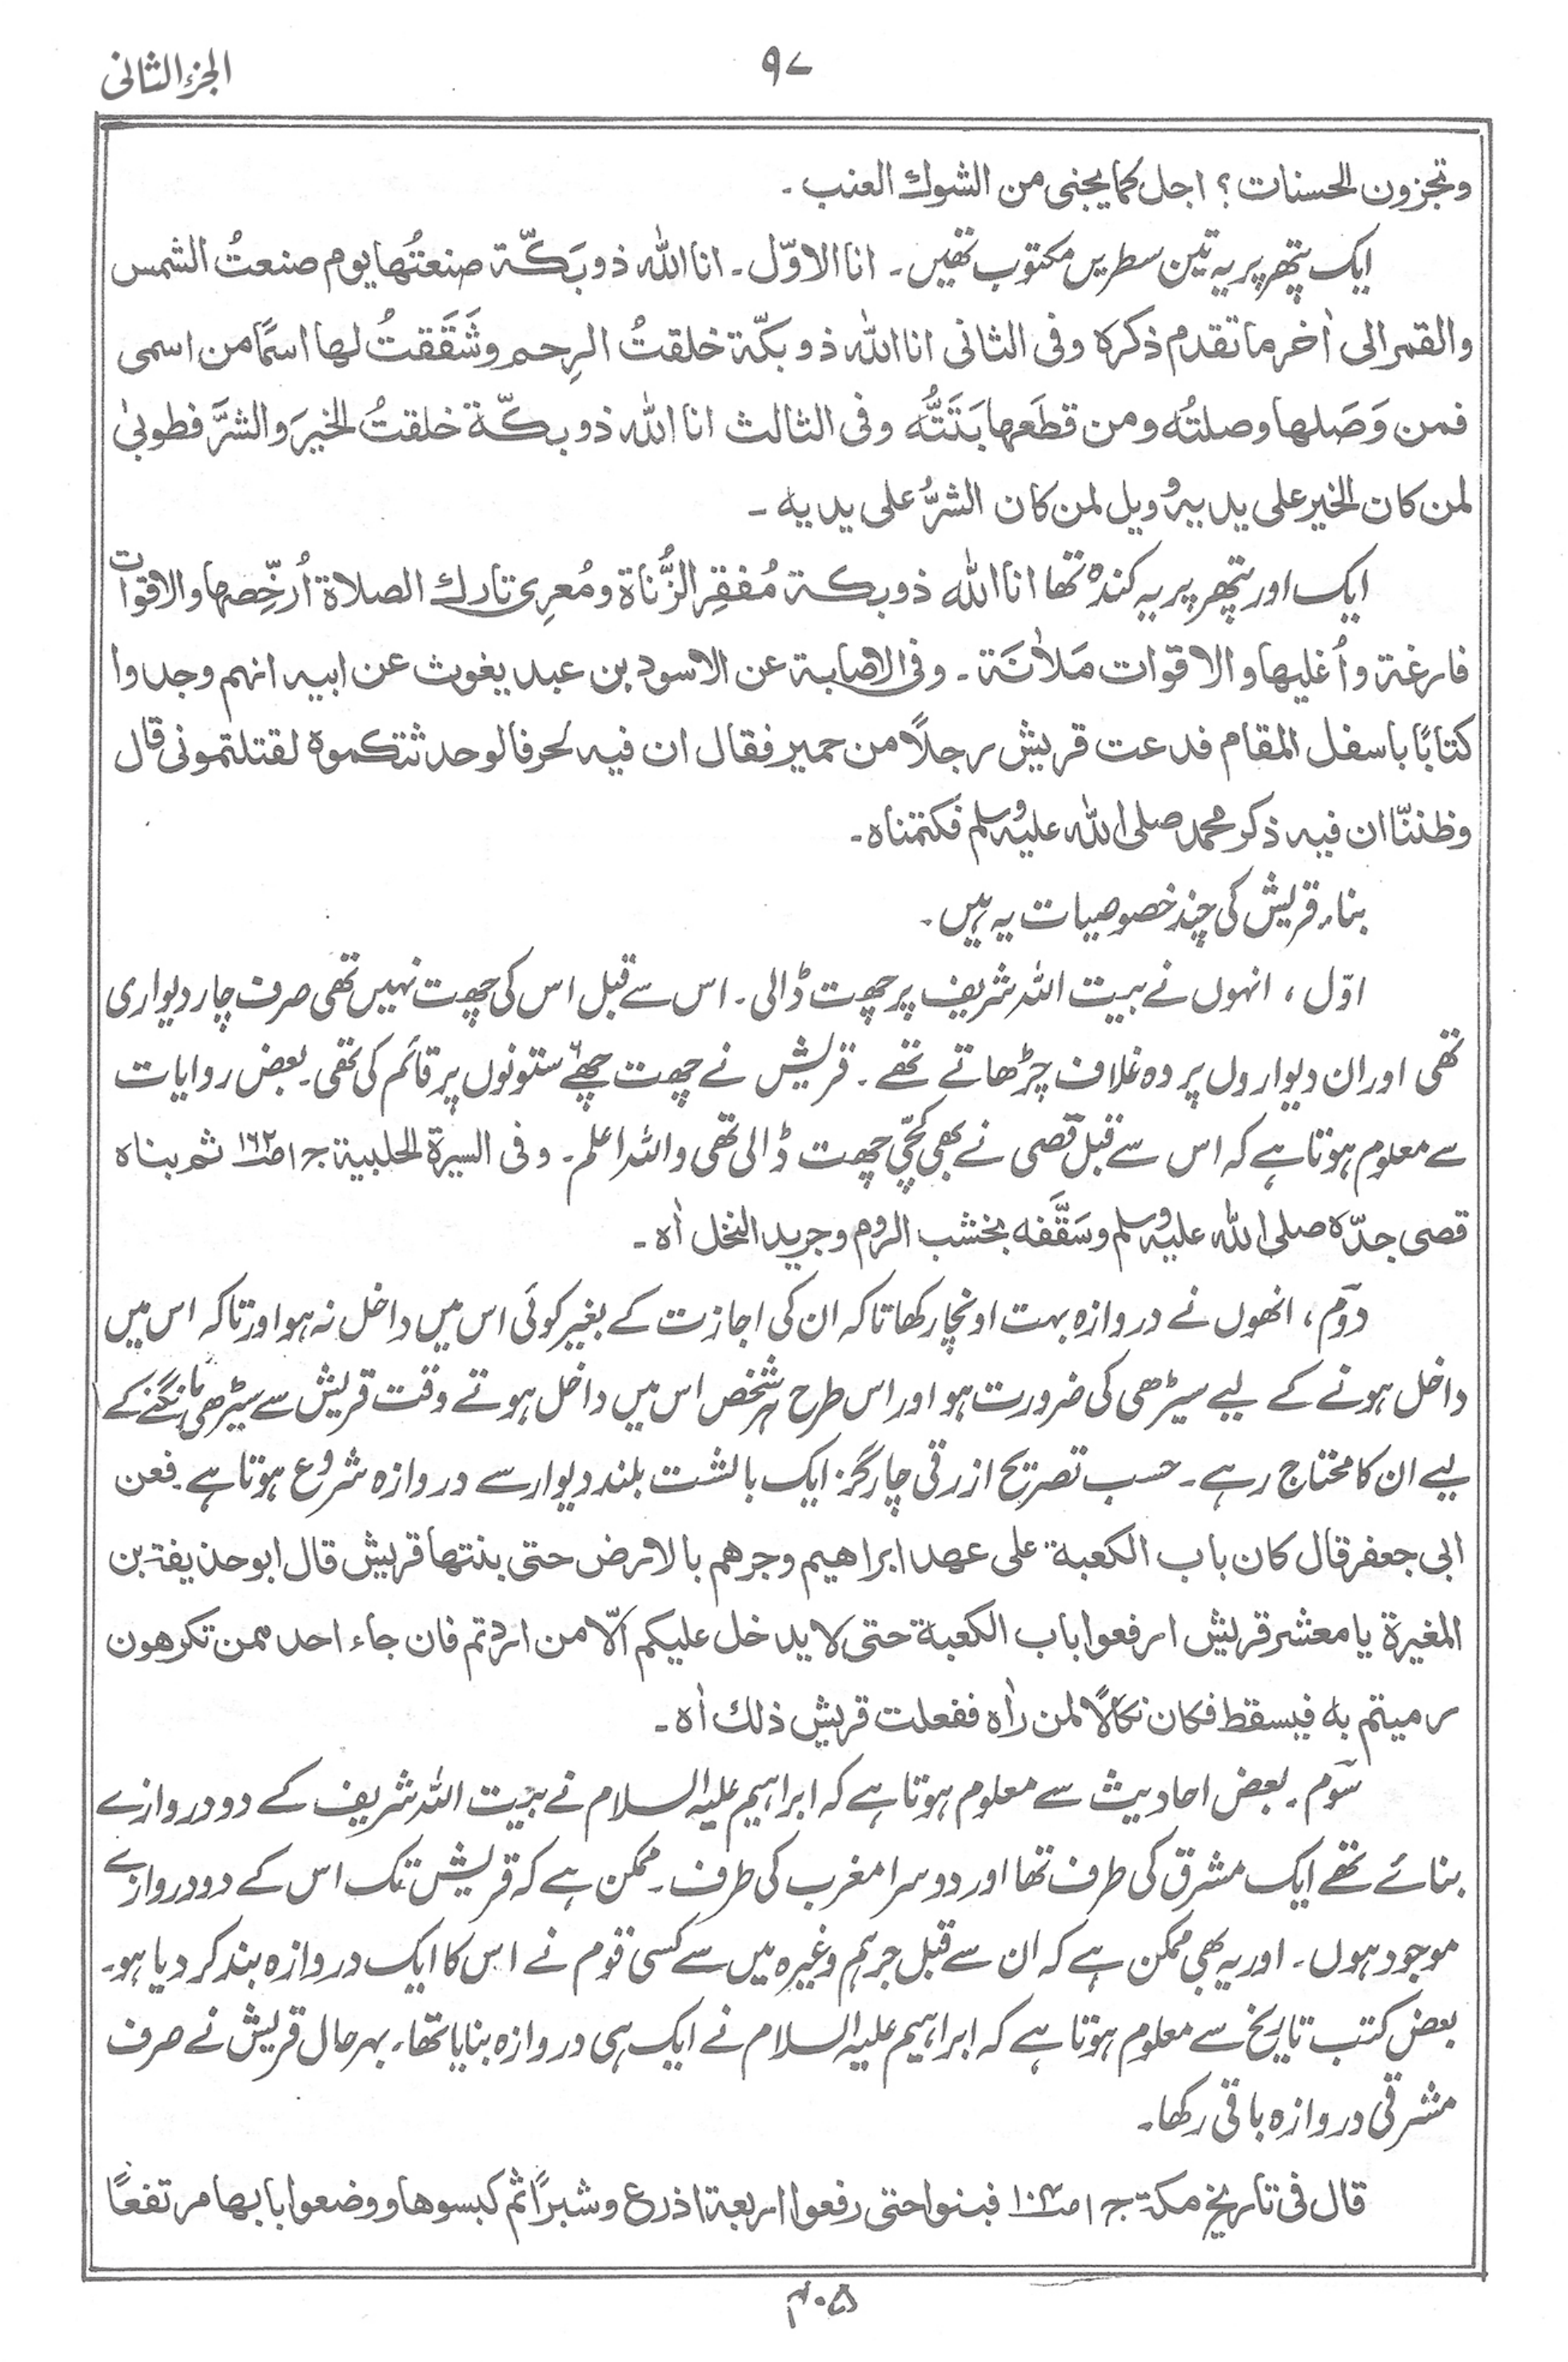 الجزء الثانی
۹۷
وتجزون الحسنات؟ اجل كما يجنى من الشوك العنب۔
ایک پتھر پر یہ تین سطریں مکتوب تھیں۔ انا الاوّل۔ انا الله ذوبَكّة صنعتُها يوم صنعتُ الشمس
والقمر الى اٰخر ما تقدم ذكره وفى الثانى انا الله ذو بكّة خلقتُ الرِحم وشَقَقتُ لها اسمًا من اسمى
فمن وَصَلها وصلتُه ومن قطَعها بَتَتُّه وفى الثالث انا الله ذو بكّة خلقتُ الخيرَ والشرَّ فطوبىٰ
لمن كان الخير على يديه وويل لمن كان الشرُّ على يديه۔
ایک اور پتھر پر یہ کندہ تھا انا الله ذو بكة مُفقِر الزُّناة ومُعرِى تارك الصلاة اُرخِّصها والاقوات
فارغة واُغليها والاقوات مَلاٰنَة۔ وفى الاصابة عن الاسود بن عبد يغوث عن ابيه انهم وجدوا
كتابًا باسفل المقام فدعت قريش رجلًا من حمير فقال ان فيه لحرفا لوحدثتكموه لقتلتمونى قال
وظننّا ان فيه ذكر محمد صلى الله عليه وسلم فكتمناه۔
بناء قریش کی چند خصوصیات یہ ہیں۔
اوّل، انہوں نے بیت اللہ شریف پر چھت ڈالی۔ اس سے قبل اس کی چھت نہیں تھی صرف چار دیواری
تھی اور ان دیواروں پر وہ غلاف چڑھاتے تھے۔ قریش نے چھت چھے ۶ ستونوں پر قائم کی تھی۔ بعض روایات
سے معلوم ہوتا ہے کہ اس سے قبل قصی نے بھی کچّی چھت ڈالی تھی واللہ اعلم۔ وفى السيرة الحلبية ج۱ ص۱۶۲ ثم بناه
قصى جدّه صلى الله عليه وسلم وسَقَّفه بخشب الروم وجريد النخل اٰه۔
دوّم، انھوں نے دروازہ بہت اونچا رکھا تاکہ ان کی اجازت کے بغیر کوئی اس میں داخل نہ ہو اور تاکہ اس میں
داخل ہونے کے لیے سیڑھی کی ضرورت ہو اور اس طرح ہر شخص اس میں داخل ہوتے وقت قریش سے سیڑھی مانگنے کے
لیے ان کا محتاج رہے۔ حسب تصریح ازرقی چار گز ایک بالشت بلند دیوار سے دروازہ شروع ہوتا ہے۔ فعن
ابى جعفر قال كان باب الكعبة على عهد ابراهيم وجرهم بالارض حتى بنتها قريش قال ابو حذيفة بن
المغيرة يا معشر قريش ارفعوا باب الكعبة حتى لا يدخل عليكم الّا من اردتم فان جاء احد ممن تكرهون
رميتم به فيسقط فكان نكالًا لمن راٰه ففعلت قريش ذلك اٰه۔
سوّم۔ بعض احادیث سے معلوم ہوتا ہے کہ ابراہیم علیہ السلام نے بیت اللہ شریف کے دو دروازے
بنائے تھے ایک مشرق کی طرف تھا اور دوسرا مغرب کی طرف۔ ممکن ہے کہ قریش تک اس کے دو دروازے
موجود ہوں۔ اور یہ بھی ممکن ہے کہ ان سے قبل جرہم وغیرہ میں سے کسی قوم نے اس کا ایک دروازہ بند کر دیا ہو۔
بعض کتب تاریخ سے معلوم ہوتا ہے کہ ابراہیم علیہ السلام نے ایک ہی دروازہ بنایا تھا۔ بہرحال قریش نے صرف
مشرقی دروازہ باقی رکھا۔
قال فى تاريخ مكة ج۱ ص۱۰۴ فبنوا حتى رفعوا اربعة اذرع وشبرًا ثم كبسوها ووضعوا بابها مرتفعًا
۴۰۵